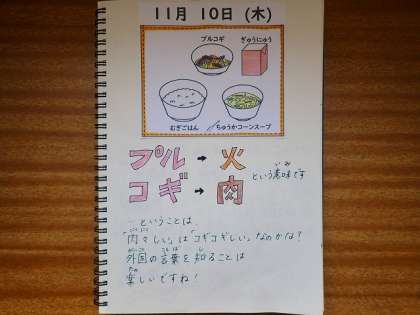 11月 10日 (木)
プルコギ
ぎゅうにゅう
むぎごはん
ちゅうかコーンスープ
プル → 火
コギ → 肉
という意味です
いみ
ということは
「肉々しい」は「コギコギしい」なのかな?
にくにく
外国の言葉を知ることは
がいこく ことば し
楽しいですね!
たの